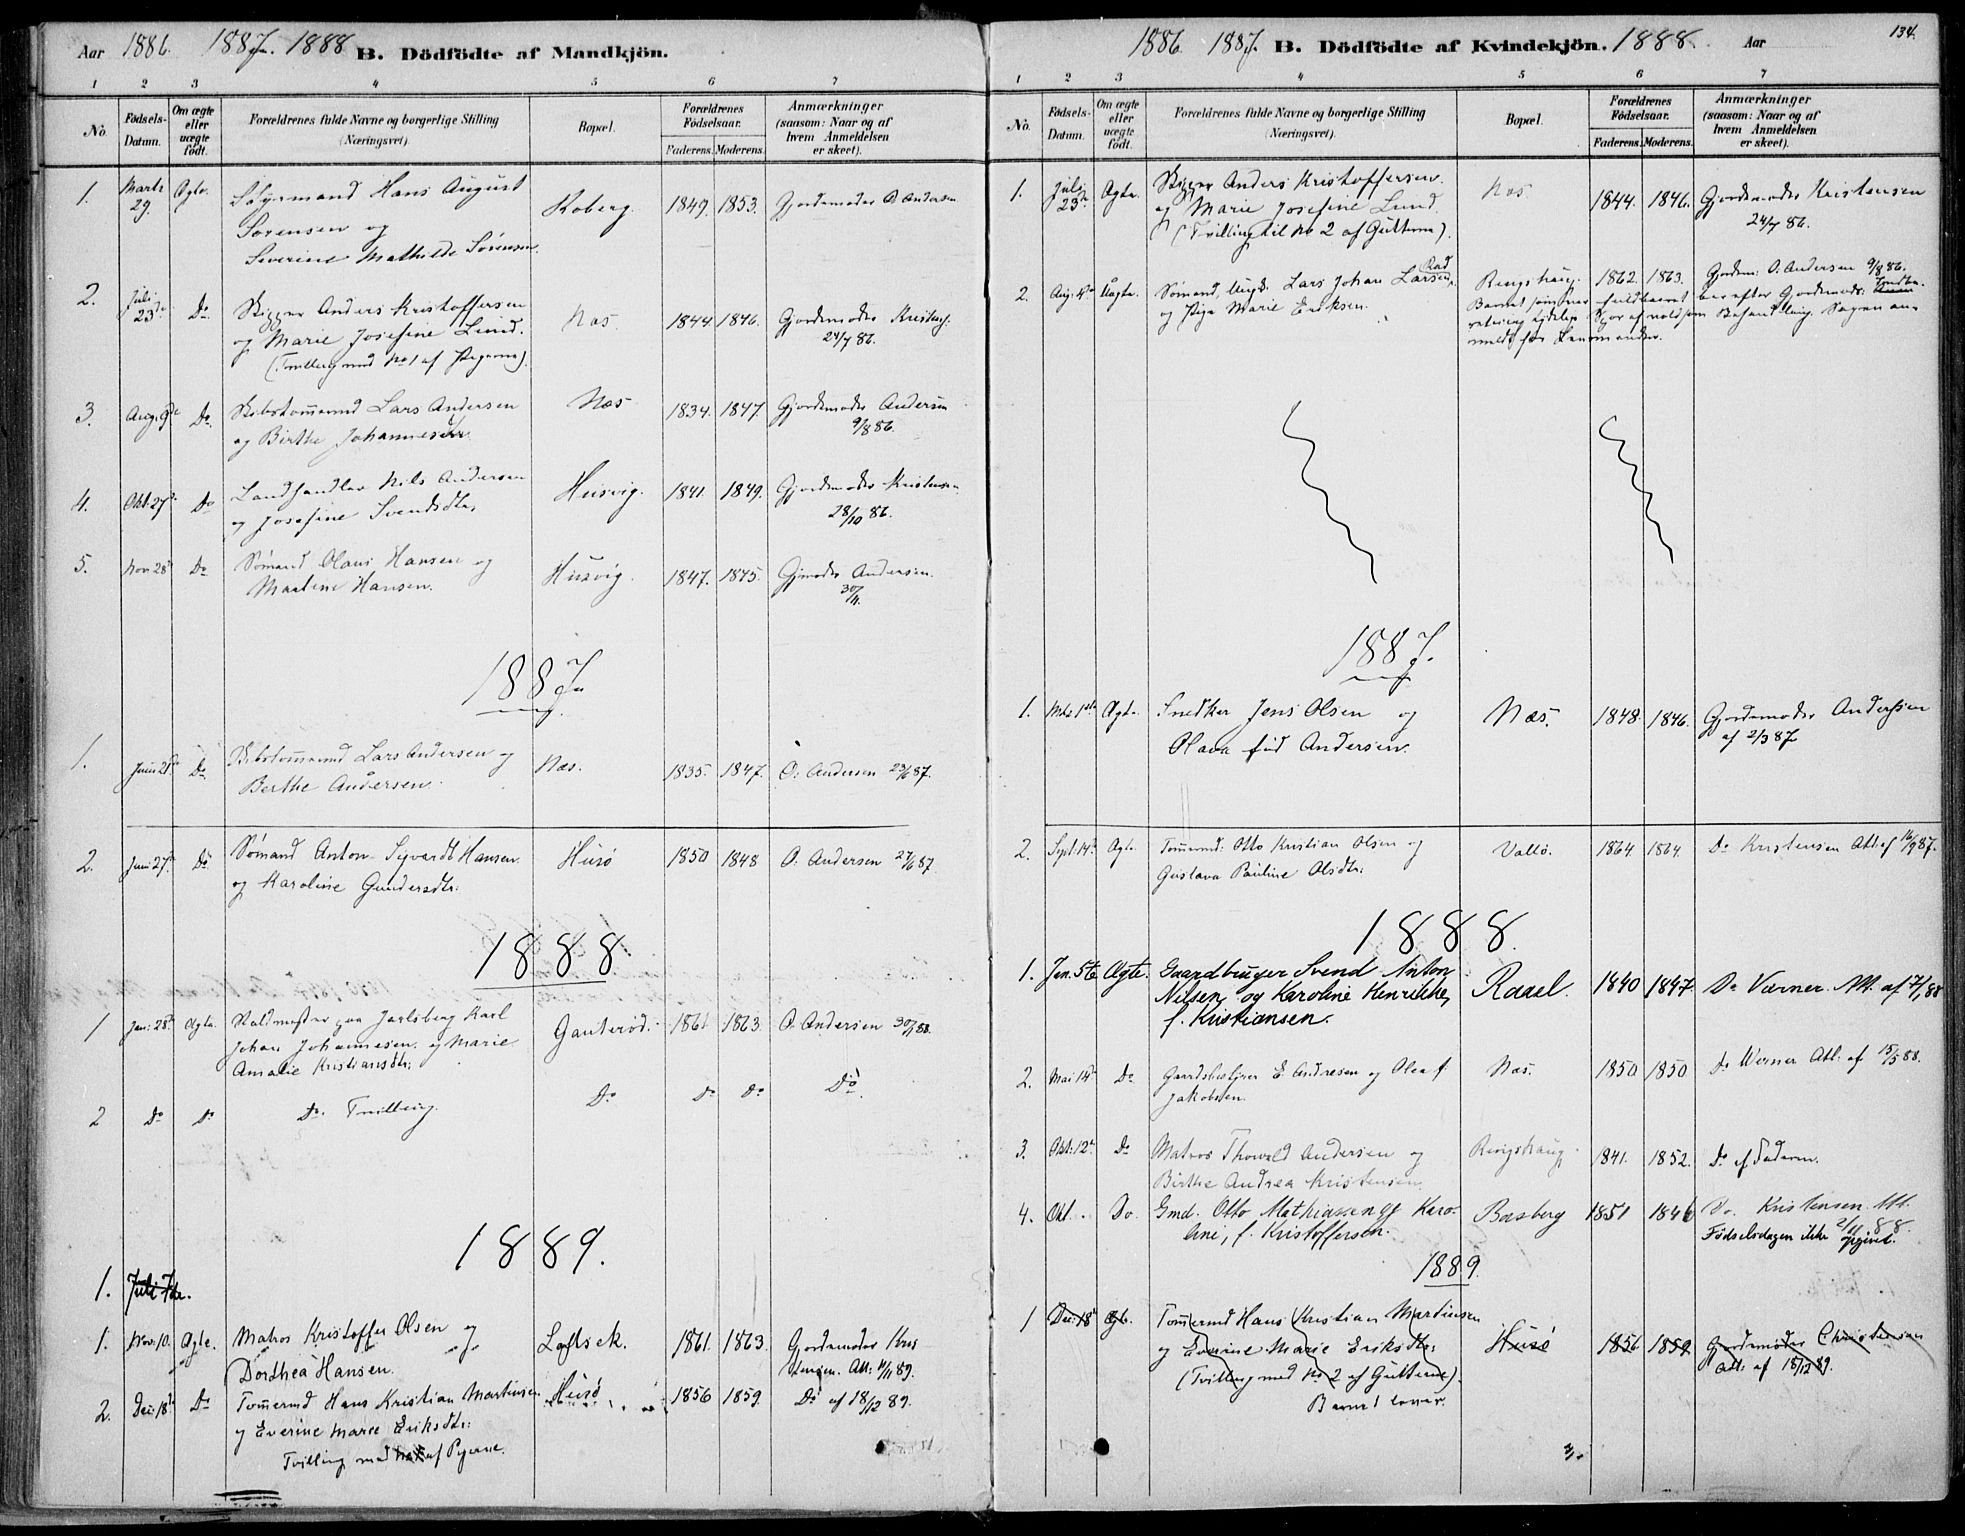 Aar 1886. 1887. 1888 B. Dödfödte af Mandkjön.
1 2 3 4 5 6 7
No. Födsels-Datum. Om ægte eller uægte födt. Forældrenes fulde Navne og borgerlige Stilling (Næringsvei). Bopæl. Forældrenes Födselsaar. Faderens. Moderens. Anmærkninger (saasom: Naar og af hvem Anmeldelsen er skeet).
1. Marts 29. Ægte. Styrmand Hans August Koberg. 1849. 1853. Gjordemoder O. Andersen
Sørensen og
Severine Mathilde Sørensen.
2. Juli 23de Do Skipper Anders Kristoffersen Næs. 1844. 1846. Gjordemoder Kristens:
og Marie Josefine Lund. 24/7 86.
(Tvilling med No 1 af Pigerne).
3. Aug. 9de Do. Skibstømmermd Lars Andersen Næs 1834. 1847. Gjordemoder Andersen
og Birthe Johannesen. 9/8 86.
4. Okt. 27de Do Landhandler Nils Andersen Husvig. 1841. 1849. Gjordemoder Kristensen
og Josefine Svendsdtr. 28/10 86.
5. Nov 28de Do Sømand Olaus Hansen og Husvig. 1847. 1845. Gjmoder Andersen.
Martine Hansen. 30/11.
1887
1. Juni 21de Do Skibstømmermd Lars Andersen og Næs. 1835. 1847. O. Andersen 23/6 87.
Berthe Andersen.
2. Juni 27de Do Sømand Anton Syverdt Hansen Husø 1850 1848 O. Andersen 27/6 87.
og Karoline Gundersdtr:
1888
1 Jan: 28de Ægte. Staldmester paa Jarlsberg Karl Gauterød. 1861 1863. O. Andersen 30/1 88.
Johan Johannesen og Marie
Amalie Kristiansdtr:
2 Do Do Do. Tvilling. Do Do Do Do.
1889.
1. Juli 7de.
1. Nov. 10. Ægte. Matros Kristoffer Olsen og Loftsek. 1861. 1863. Gjordemoder Kris
Dorthea Hansen. tensen. Att: 11/11 89.
2. Dec: 18de Do Tømmermd Hans Kristian Martinsen Husø 1856 1859. Do af 18/12 89.
og Everine Marie Eriksdtr:
Tvilling med No 1 af Pigerne.
1886. 1887. B. Dödfödte af Kvindekjön. 1888. Aar 134.
1 2 3 4 5 6 7
No. Födsels-Datum. Om ægte eller uægte födt. Forældrenes fulde Navne og borgerlige Stilling (Næringsvei). Bopæl. Forældrenes Födselsaar. Faderens. Moderens. Anmærkninger (saasom: Naar og af hvem Anmeldelsen er skeet).
1. Juli 23de Ægte. Skipper Anders Kristoffersen Næs. 1844. 1846. Gjordemoder Kristensen
og Marie Josefine Lund. 24/7 86.
(Tvilling til No 2 af Gutterne).
2. Aug. 4de Uægte. Sømand, Ungk. Lars Johan Larsen, Ringshaug. 1862. 1863. Gjordem: O. Andersen 9/8 86.
og Pige Marie Eriksen. Barnet som var fuldbaaret
1887.
1. Mts 1ste Ægte. Snedker Jens Olsen og Næs. 1848. 1846. Gjordemoder Andersen
Olava fød Andersen. af 2/3 87
2. Sept. 14de Ægte. Tømmermd: Otto Kristian Olsen og Vallø. 1864. 1864. Do Kristensen Att af 16/9 87.
Gustava Pauline Olsdtr:
1888.
1. Jan. 5te Ægte. Gaardbruger Svend Anton Raael. 1840 1847 Do Værner. Att. af 7/1 88
Nilsen, og Karoline Henrikke,
f. Kristiansen.
2. Mai 14de Do Gaardsbestyrer E. Andresen og Olea f. Næs. 1850 1850 Do Werner Att: af 15/5 88.
Jakobsen.
3. Okt: 12te Do Matros Thorvald Andersen og Ringshaug 1841. 1852. Do af Faderen.
Birthe Andrea Kristensen.
4. Okt. Do. Gmd. Otto Mathiassen og Karo- Basberg 1851 1846 Do. Kristensen Att.
line, f. Kristoffersen. 2/11 88.
Fødselsdagen ikke opgivet.
1889.
1 Dec: 18de Ægte. Tømmermd Hans Kristian Martinsen Husø 1856 1859. Gjordemoder Christensen
og Everine Marie Eriksdtr: Att: af 18/12 89.
(Tvilling med No 2 af Gutterne).
Barnet lever.